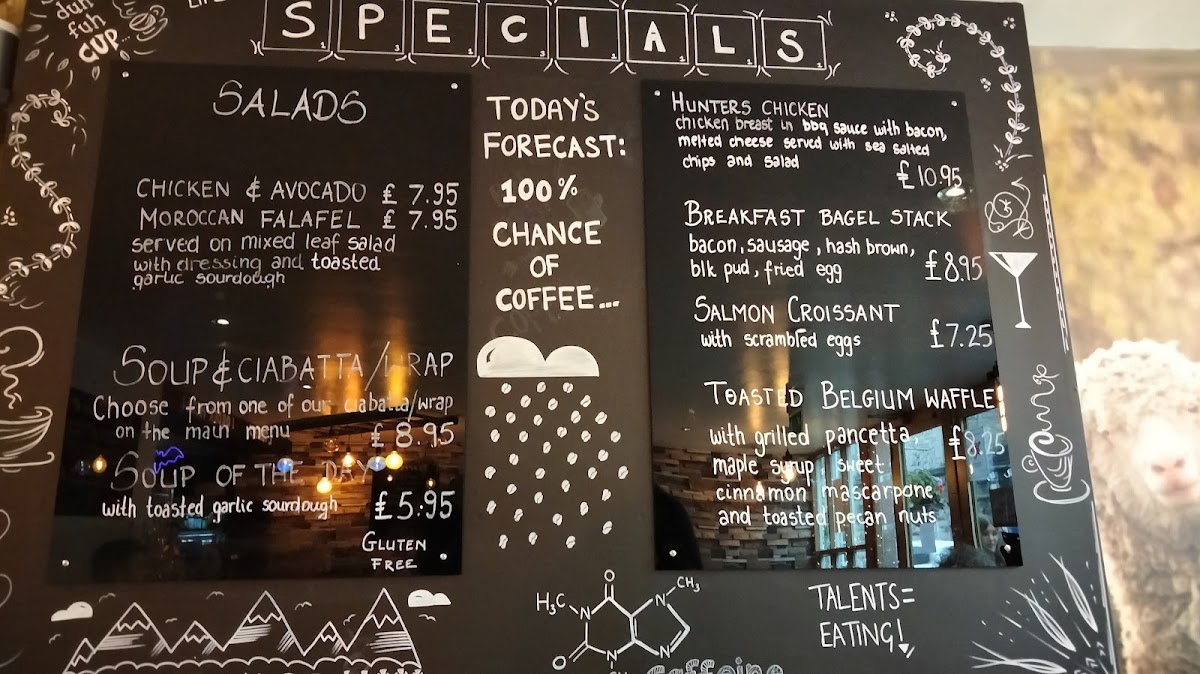 duh
fuh
CUP...
SPECIALS
SALADS
CHICKEN & AVOCADO £ 7.95
MOROCCAN FALAFEL £ 7.95
served on mixed leaf salad
with dressing and toasted
garlic sourdough
SOUP & CIABATTA/WRAP
Choose from one of our ciabatta/wrap
on the main menu
£ 8.95
SOUP OF THE DAY
with toasted garlic sourdough £5.95
GLUTEN
FREE
TODAY'S
FORECAST:
100%
CHANCE
OF
COFFEE...
HUNTERS CHICKEN
chicken breast in bbq sauce with bacon,
melted cheese served with sea salted
chips and salad
£10.95
BREAKFAST BAGEL STACK
bacon, sausage, hash brown,
blk pud, fried egg £8.95
SALMON CROISSANT
with scrambled eggs £7.25
TOASTED BELGIUM WAFFLE
with grilled pancetta, £8.25
maple syrup sweet
cinnamon mascarpone
and toasted pecan nuts
H₃C
N
O
N
CH₃
O
N
N
CH
caffeine
TALENTS=
EATING!